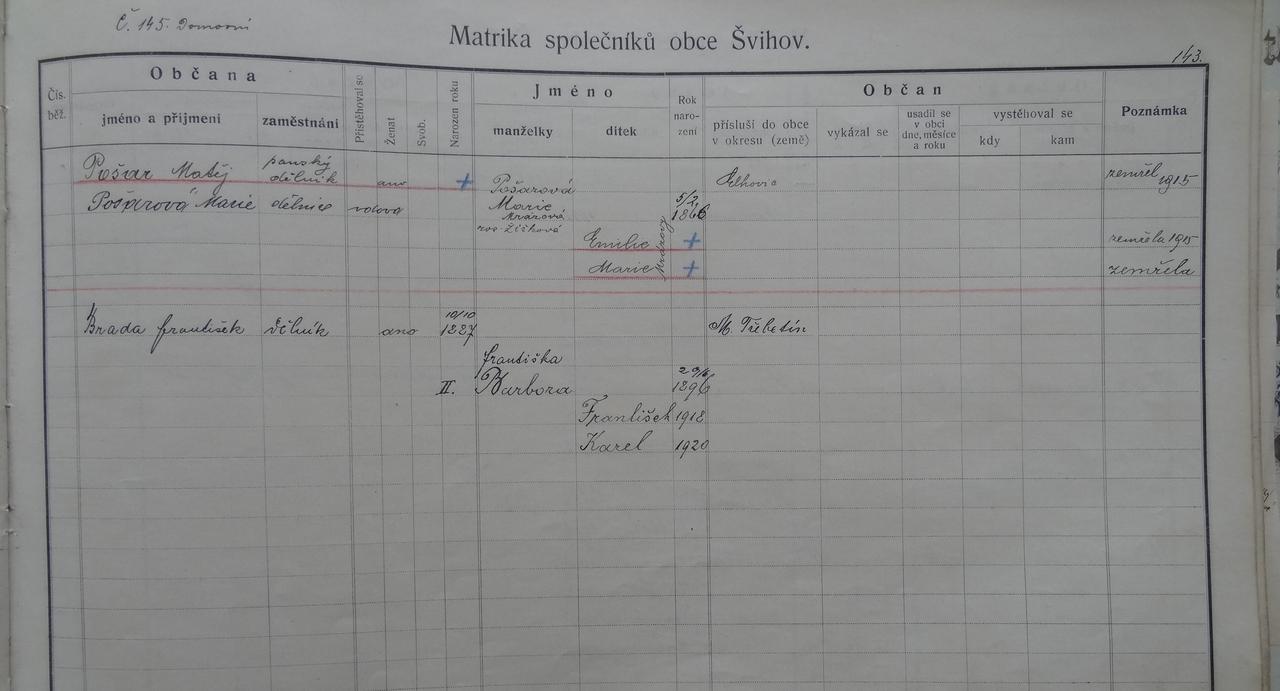 Č. 145. Domovní
Matrika společníků obce Švihov.
143.
Čís. běž.
Občana
jméno a příjmení
zaměstnání
Přistěhoval se
Ženat
Svob.
Narozen roku
Jméno
manželky
dítek
Rok naro- zení
Občan
přísluší do obce v okresu (země)
vykázal se
usadil se v obci dne, měsíce a roku
vystěhoval se
kdy
kam
Poznámka
Pošar Matěj panský dělník ano + Pošarová zemřel 1915
Pošarová Marie dělnice vdova Marie 5/2 1866
Mrázová
roz. Žižková
Emilie + zemřela 1915
Marie + zemřela
Mrázovy
Brada František dělník ano 10/10 1887 M. Třebetín
Františka
II. Barbora 1896
František 1918
Karel 1920